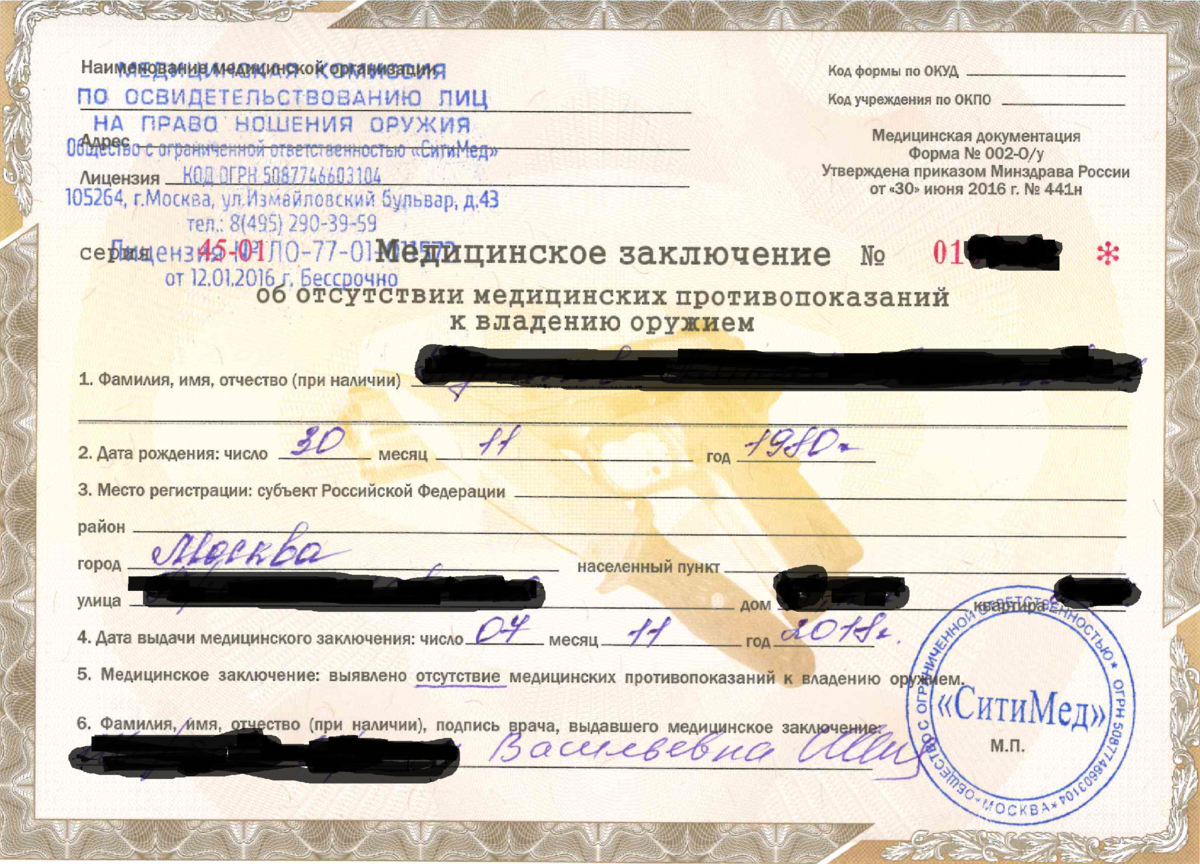 Наименование медицинской организации
МЕДИЦИНСКАЯ КОМИССИЯ
ПО ОСВИДЕТЕЛЬСТВОВАНИЮ ЛИЦ
НА ПРАВО НОШЕНИЯ ОРУЖИЯ
Адрес
Общество с ограниченной ответственностью «СитиМед»
Лицензия КОД ОГРН 5087746603104
105264, г.Москва, ул.Измайловский бульвар, д.43
тел.: 8(495) 290-39-59
Лицензия ЛО-77-01-
от 12.01.2016 г. Бессрочно
Код формы по ОКУД
Код учреждения по ОКПО
Медицинская документация
Форма № 002-О/у
Утверждена приказом Минздрава России
от «30» июня 2016 г. № 441н
серия 45-01 Медицинское заключение № 01 *
об отсутствии медицинских противопоказаний
к владению оружием
1. Фамилия, имя, отчество (при наличии)
2. Дата рождения: число 30 месяц 11 год 1980г
3. Место регистрации: субъект Российской Федерации
район
город Москва населенный пункт
улица дом квартира
4. Дата выдачи медицинского заключения: число 07 месяц 11 год 2018г.
5. Медицинское заключение: выявлено отсутствие медицинских противопоказаний к владению оружием.
6. Фамилия, имя, отчество (при наличии), подпись врача, выдавшего медицинское заключение:
Васильевна
ОБЩЕСТВО С ОГРАНИЧЕННОЙ ОТВЕТСТВЕННОСТЬЮ * ОГРН 5087746603104 * МОСКВА *
«СитиМед»
М.П.